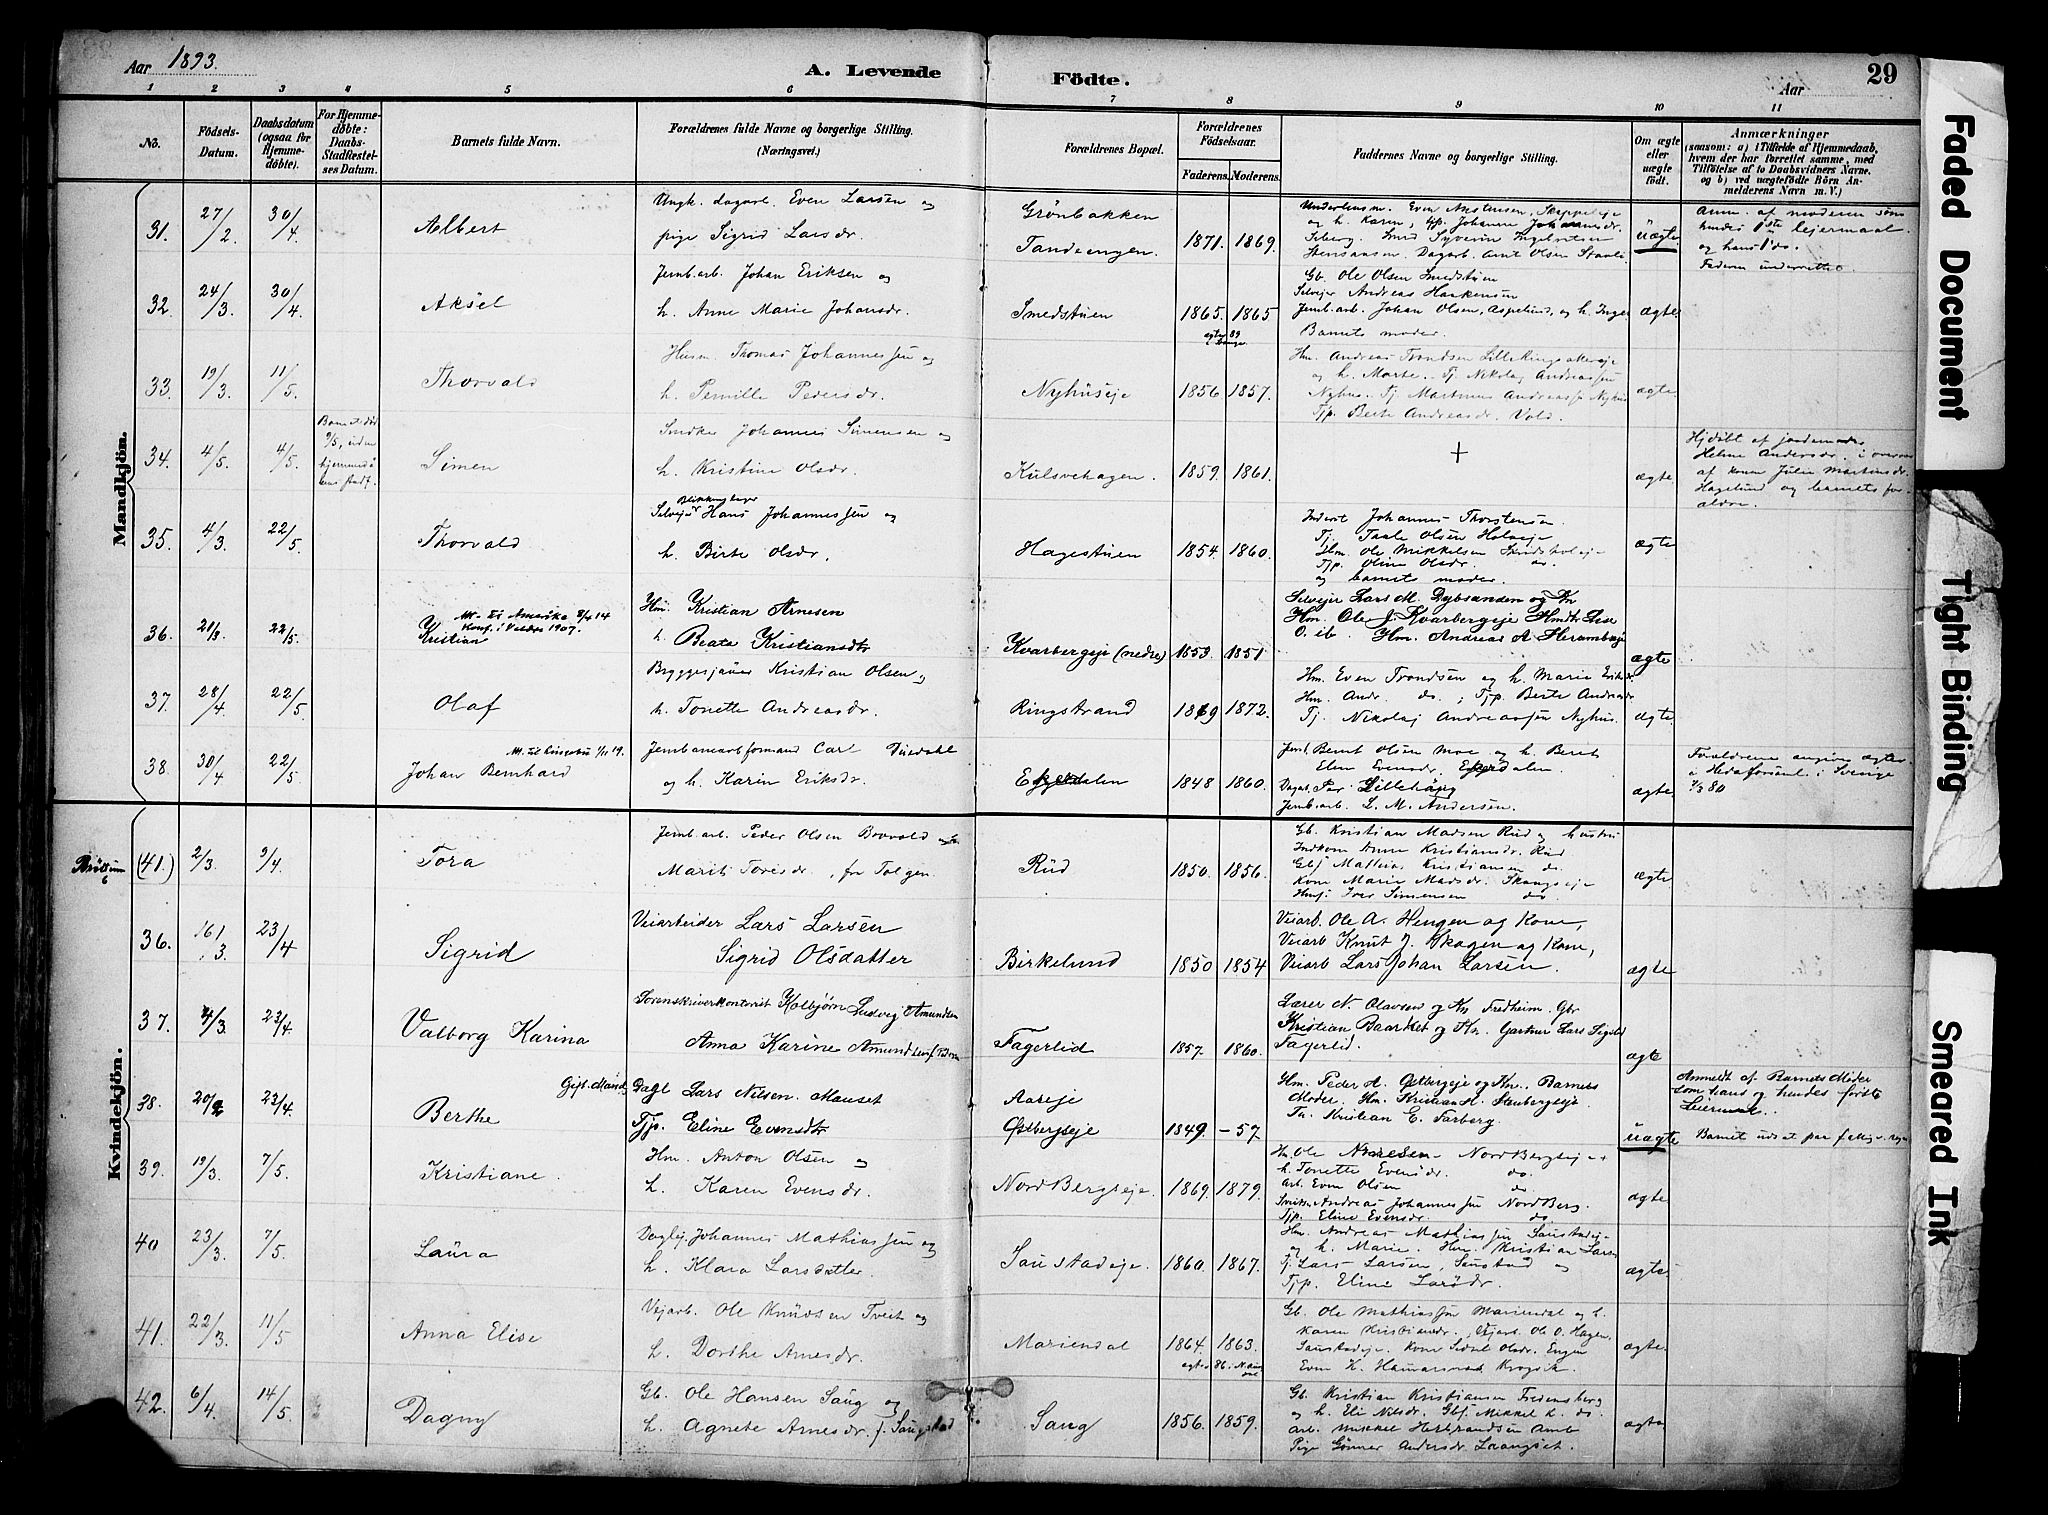 Aar 1893.
A. Levende
Födte.
Aar
29
1 2 3 4 5 6 7 8 9 10 11
No.
Födsels-Datum.
Daabsdatum (ogsaa for Hjemmedöbte).
For Hjemmedöbte: Daabs-Stadfæstelses Datum.
Barnets fulde Navn.
Forældrenes fulde Navne og borgerlige Stilling. (Næringsvei.)
Forældrenes Bopæl.
Forældrenes Födselsaar.
Faderens. Moderens.
Faddernes Navne og borgerlige Stilling.
Om ægte eller uægte födt.
Anmærkninger
(saasom: a) i Tilfælde af Hjemmedaab, hvem der har forrettet samme, med Tilföielse af to Daabsvidners Navne. og b) ved uægtefödte Börn Anmelderens Navn m. V.)
Mandkjön.
31. 27/2 30/4 Albert
Ungk. dagarb. Even Larsen og
pige Sigrid Larsdr.
Grönbakken
Tandeengen. 1871. 1869.
uægte
Anm. af moderen som
hendes 1ste lejermaal
og hans 1 do.
Faderen underrettet.
32. 24/3 30/4 Aksel
Jernb.arb. Johan Eriksen og
h. Anne Marie Johansdr.
Smedstuen 1865. 1865
Gb. Ole Olsen Smedstuen
Selvejer Andreas Haakensen
Jernb.arb. Johan Olsen, Aspelund, og h. Inger
Barnets moder.
ægte
33. 19/3 11/5 Thorvald
Husm. Thomas Johannessen og
h. Pernille Pedersdr.
Nyhuseje 1856 1857.
Hm. Andreas Trondsen Lilleringsakereje
og h. Marte. Tj. Nikolaj Andreassen
Nyhus. Tj. Martinus Andreassen Nyhus
Tjp. Berte Andreasdr. Vold.
ægte
34. 4/5. 4/5. Simen
Snedker Johannes Simensen og
h. Kristine Olsdr.
Kulsvehagen. 1859. 1861.
+
ægte.
Hjdöbt af jordemoder
Helene Andersdr. i overvær
af kone Julie Martinsdr.
Hagelund og barnets for-
ældre.
35. 4/3 22/5. Thorvald
Selvejer Hans Johannessen og
h. Birte Olsdr.
Hagestuen 1854. 1860.
Inderst Johannes Thorstensen
Tj. Paale Olsen Holveje
Hm. Ole Mikkelsen
Tjp. Oline Olsdr. do.
og barnets moder.
ægte
36. 21/3 22/5. Kristian
Utt. til Amerika 8/4 14
Konf. i Valdres 1907.
Hm. Kristian Arnesen
h. Beate Kristiansdtr
Kvarbergseje (nedre) 1853. 1851
Selvejer Lars M. Dybsanden og Kn
Hm. Ole J. Kvarbergseje
O. ib. Hm. Andreas A.
ægte
37. 28/4 22/5. Olaf
Bryggesjauer Kristian Olsen og
h. Tonette Andreasdr.
Ringstrand 1869 1872.
Hm. Even Trondsen og h. Marie Eriksdr.
Hm. Andr. do; Tjp. Berte Andreasdr
Tj. Nikolaj Andreassen Nyhus.
ægte
38. 30/4 22/5 Johan Bernhard
Jernbanearbformand Carl
og h. Karin Eriksdr.
1848 1860.
Jernb. Bernt Olsen Moe og h. Beret
Elen Evensdr.
Dagarb. Per Lillehaug
Jernb.arb. L. M. Andersen.
ægte
Forældrene angives ægtev.
i Hedaforsaml. i Sverige
7/3 80
Kvindekjön.
Bröttum
6
(41.) 2/3 9/4 Tora
Jernb.arb. Peder Olsen
Marit Toresdr., fra Tolgen.
Rüd 1850. 1856.
Gb. Kristian Madsen Rud og hustru
Indkone Anne Kristiansdr. Rud
Gbsj Mathias Kristiansen do.
Kone Marie Madsdr. Skougseje
Husj. Iver Simensen do.
ægte
36. 16/3 23/4 Sigrid
Veiarbeider Lars Larsen
Sigrid Olsdatter
Birkelund 1850 1854
Veiarb. Ole A. Hengen og Kone,
Veiarb Knut J. Skagen og Kone,
Veiarb Lars Johan Larsen.
ægte
37. 4/3 23/4. Valborg Karina
Sorenskriverkontorist Kolbjørn Ludvig Amundsen
Anna Karine Amundsen f.
Fagerlid 1857. 1860.
Lærer N. Olavsen og Kn Fredheim. Gbr
Kristian Baarket og Kn. Gartner Lars Sigstad
Fagerlid.
ægte
38. 23/4. Berthe
Gift. Mand
Dagl Lars Nilsen. Mauset
Tjp. Eline Evensdtr
Aareje
Østbergseje 1849. - 57.
Hm. Peder A. Østbergseje og Kn. Barnets
Moder. Hm. Kristian H. Stenbergseje.
Kristian E. Farberg.
uægte
Anmeldt af Barnets Moder
som hans og hendes første
Leiermaal.
39. 19/3 7/5. Kristiane.
Hm. Anton Olsen og
h. Karen Evensdr.
Nord Bergseje. 1869. 1879.
Hm. Ole Nord Bergseje +
h. Tonette Evensdr. do.
arb. Even Olsen do
Andreas Johannessen Nord Berg.
Tjp. Eline Evensdr. do
ægte
40 23/3. 7/5. Laura
Daglej. Johannes Mathiassen og
h. Klara Larsdatter.
Saustadeje. 1860. 1867.
Hm. Andreas Mathiassen Saustadeje
og h. Marie. Hm. Kristian Larsen
Lars Larsen, Saustad og
Tjp. Eline Larsdr.
ægte
41. 22/3. 11/5 Anna Elise
Vejarb. Ole Knudsen Tveit og
h. Dorthe Arnesdr.
Mariendal 1864. 1863.
Gb. Ole Mathiassen Mariendal og h.
Karen Kristiansdr. Vejarb. Ole O. Hagen,
Saustadeje. Kone Sidsel Olsdr. Engen
Even H. Krogvik.
ægte.
42. 6/4. 14/5 Dagny
Gb. Ole Hansen Saug og
h. Agnete Arnesdr. f. Saugstad
Saug 1856. 1859.
Gb. Kristian Kristiansen Fredensberg
og h. Eli Nilsdr. Gbsj. Mikkel K. do.
arb. Mikkel Herbrandsen Amb
Pige Günner Andersdr. Laangset.
ægte
Faded Document
Tight Binding
Smeared Ink